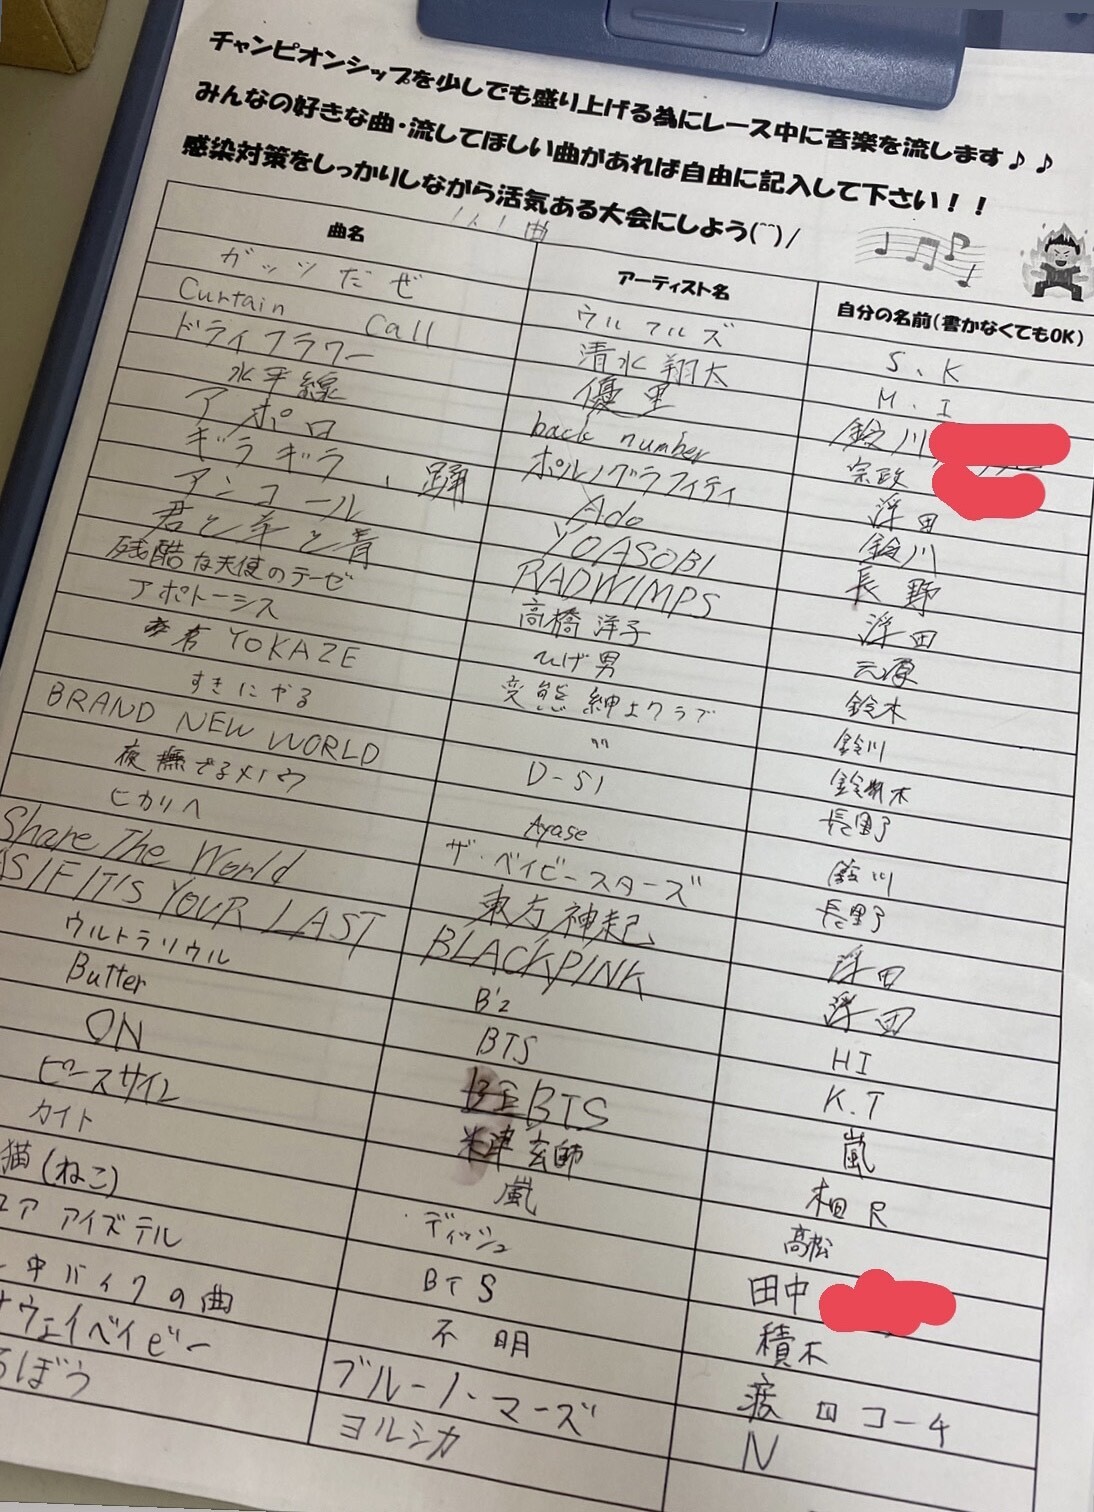 チャンピオンシップを少しでも盛り上げる為にレース中に音楽を流します♪♪
みんなの好きな曲・流してほしい曲があれば自由に記入して下さい！！
感染対策をしっかりしながら活気ある大会にしよう(^^)/
1人1曲
曲名 アーティスト名 自分の名前(書かなくてもOK)
ガッツだぜ ウルフルズ S.K
Curtain Call 清水翔太 M.I
ドライフラワー 優里 鈴川
水平線 back number 宗政
アポロ ポルノグラフィティ 浮田
ギラギラ、踊 Ado 鈴川
アンコール YOASOBI 長野
君と羊と青 RADWIMPS 浮田
残酷な天使のテーゼ 高橋洋子 元原
アポトーシス ひげ男 鈴木
YOKAZE 変態紳士クラブ 鈴川
すきにやる 〃 鈴木
BRAND NEW WORLD D-51 長野
夜撫でるメノウ Ayase 鈴川
ヒカリへ ザ・ベイビースターズ 長野
Share The World 東方神起 浮田
AS IF IT'S YOUR LAST BLACKPINK 浮田
ウルトラソウル B'z HI
Butter BTS K.T
ON BTS 嵐
ピースサイン 米津玄師 相R
カイト 嵐 高松
猫(ねこ) ディッシュ 田中
ユア アイズテル BTS 積木
中バイクの曲 不明 コーチ
ナウェイベイビー ブルーノ・マーズ N
るぼう ヨルシカ